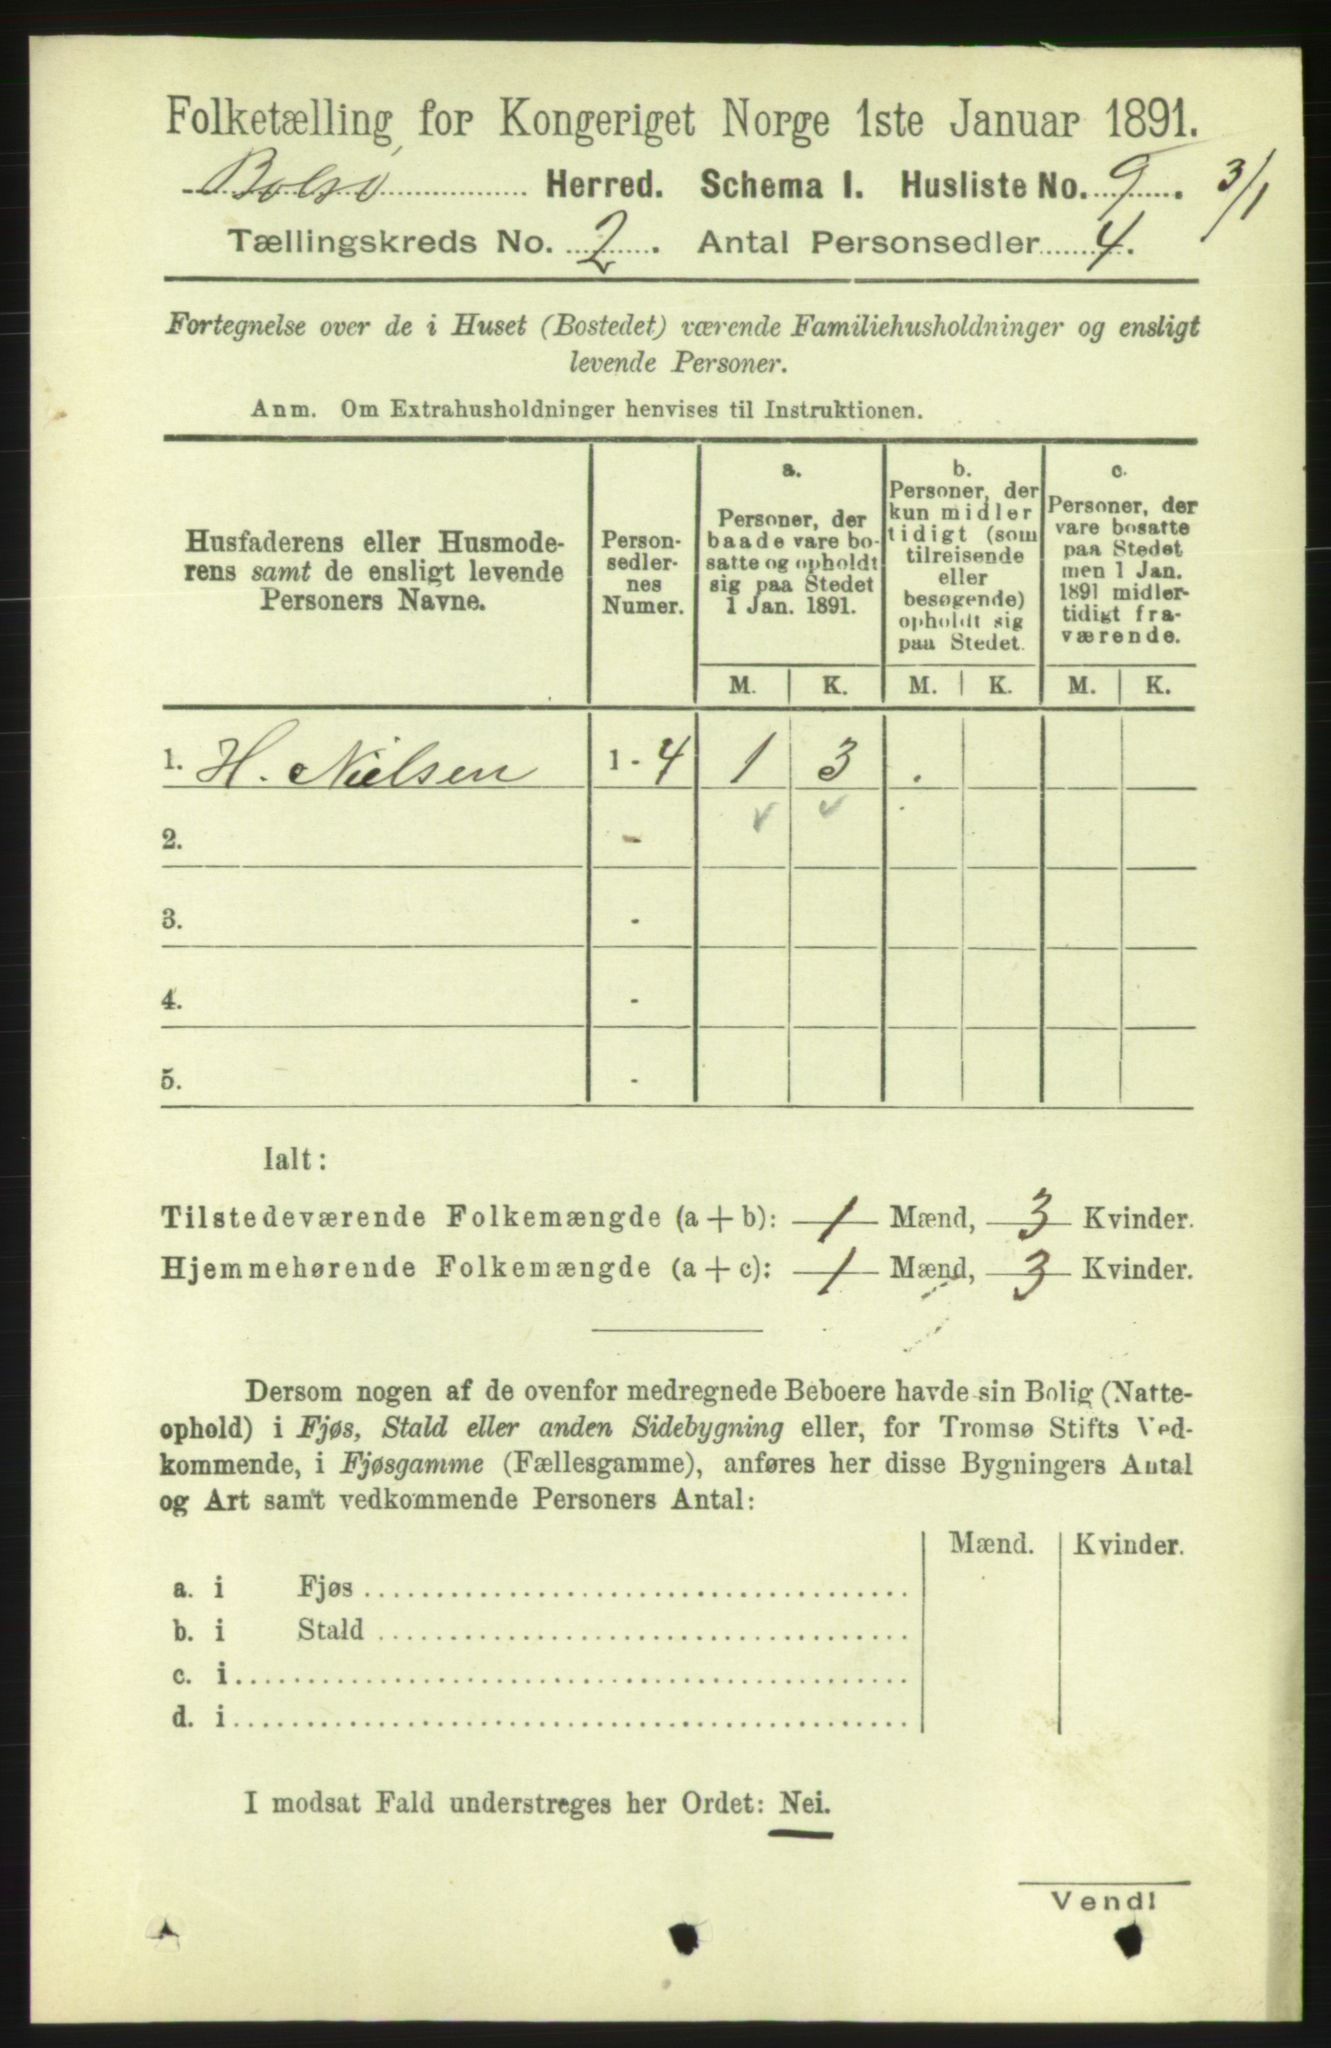 Folketælling for Kongeriget Norge 1ste Januar 1891.
Bolsø Herred. Schema I. Husliste No. 9. 3/1
Tællingskreds No. 2. Antal Personsedler 4.
Fortegnelse over de i Huset (Bostedet) værende Familiehusholdninger og ensligt
levende Personer.
Anm. Om Extrahusholdninger henvises til Instruktionen.
Husfaderens eller Husmode-
rens samt de ensligt levende
Personers Navne.
Person-
sedler-
nes
Numer.
a.
Personer, der
baade vare bo-
satte og opholdt
sig paa Stedet
1 Jan. 1891.
b.
Personer, der
kun midler
tidigt (som
tilreisende
eller
besøgende)
opholdt sig
paa Stedet.
c.
Personer, der
vare bosatte
paa Stedet
men 1 Jan.
1891 midler-
tidigt fra-
værende.
M. K. M. K. M. K.
1. H. Nielsen 1 - 4 1 3 .
2. -
3. -
4. -
5. -
Ialt:
Tilstedeværende Folkemængde (a + b): 1 Mænd, 3 Kvinder.
Hjemmehørende Folkemængde (a + c): 1 Mænd, 3 Kvinder.
Dersom nogen af de ovenfor medregnede Beboere havde sin Bolig (Natte-
ophold) i Fjøs, Stald eller anden Sidebygning eller, for Tromsø Stifts Ved-
kommende, i Fjøsgamme (Fællesgamme), anføres her disse Bygningers Antal
og Art samt vedkommende Personers Antal:
Mænd. Kvinder.
a. i Fjøs
b. i Stald
c. i
d. i
I modsat Fald understreges her Ordet: Nei.
Vend!